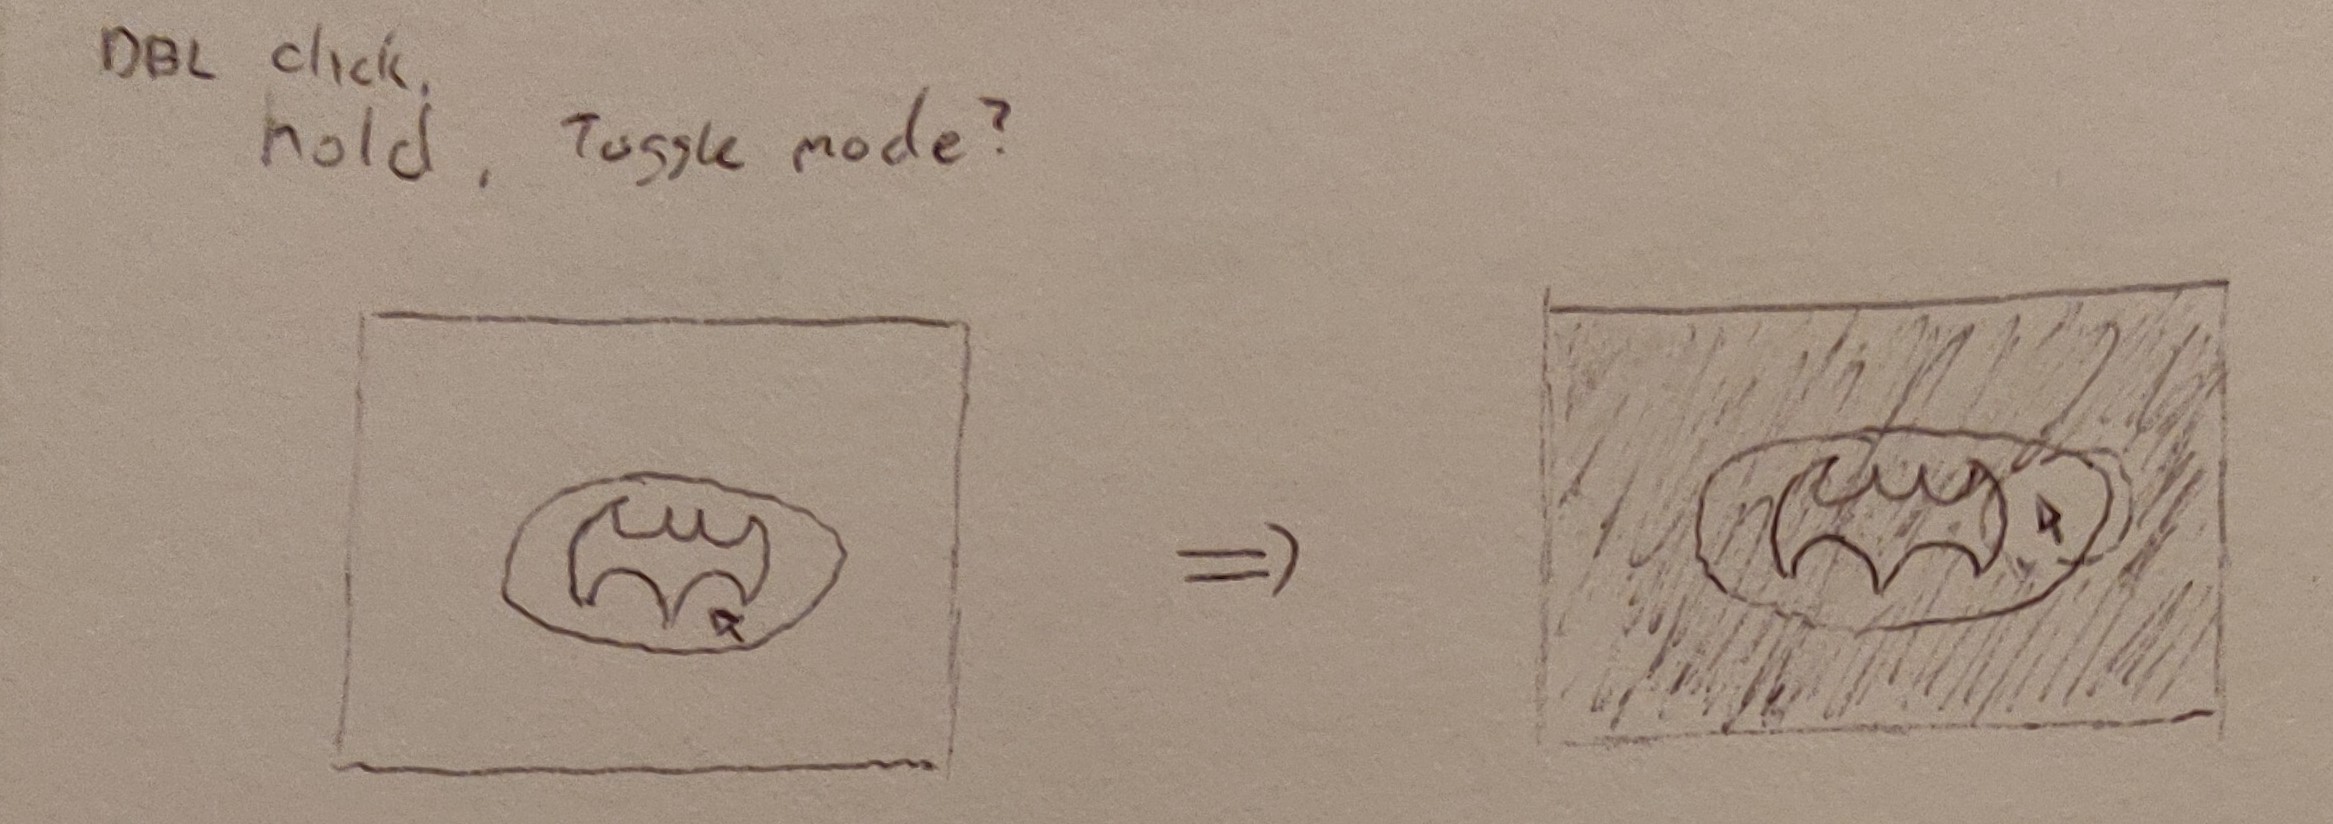 DBL click,
hold, Toggle mode?